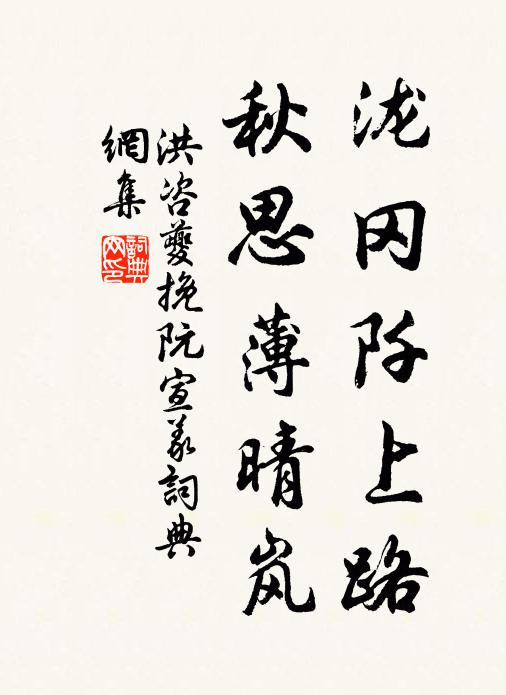 泷冈阡上路
秋思薄晴岚
洪咨夔挽阮宣义詞典
網集
詞典
网印